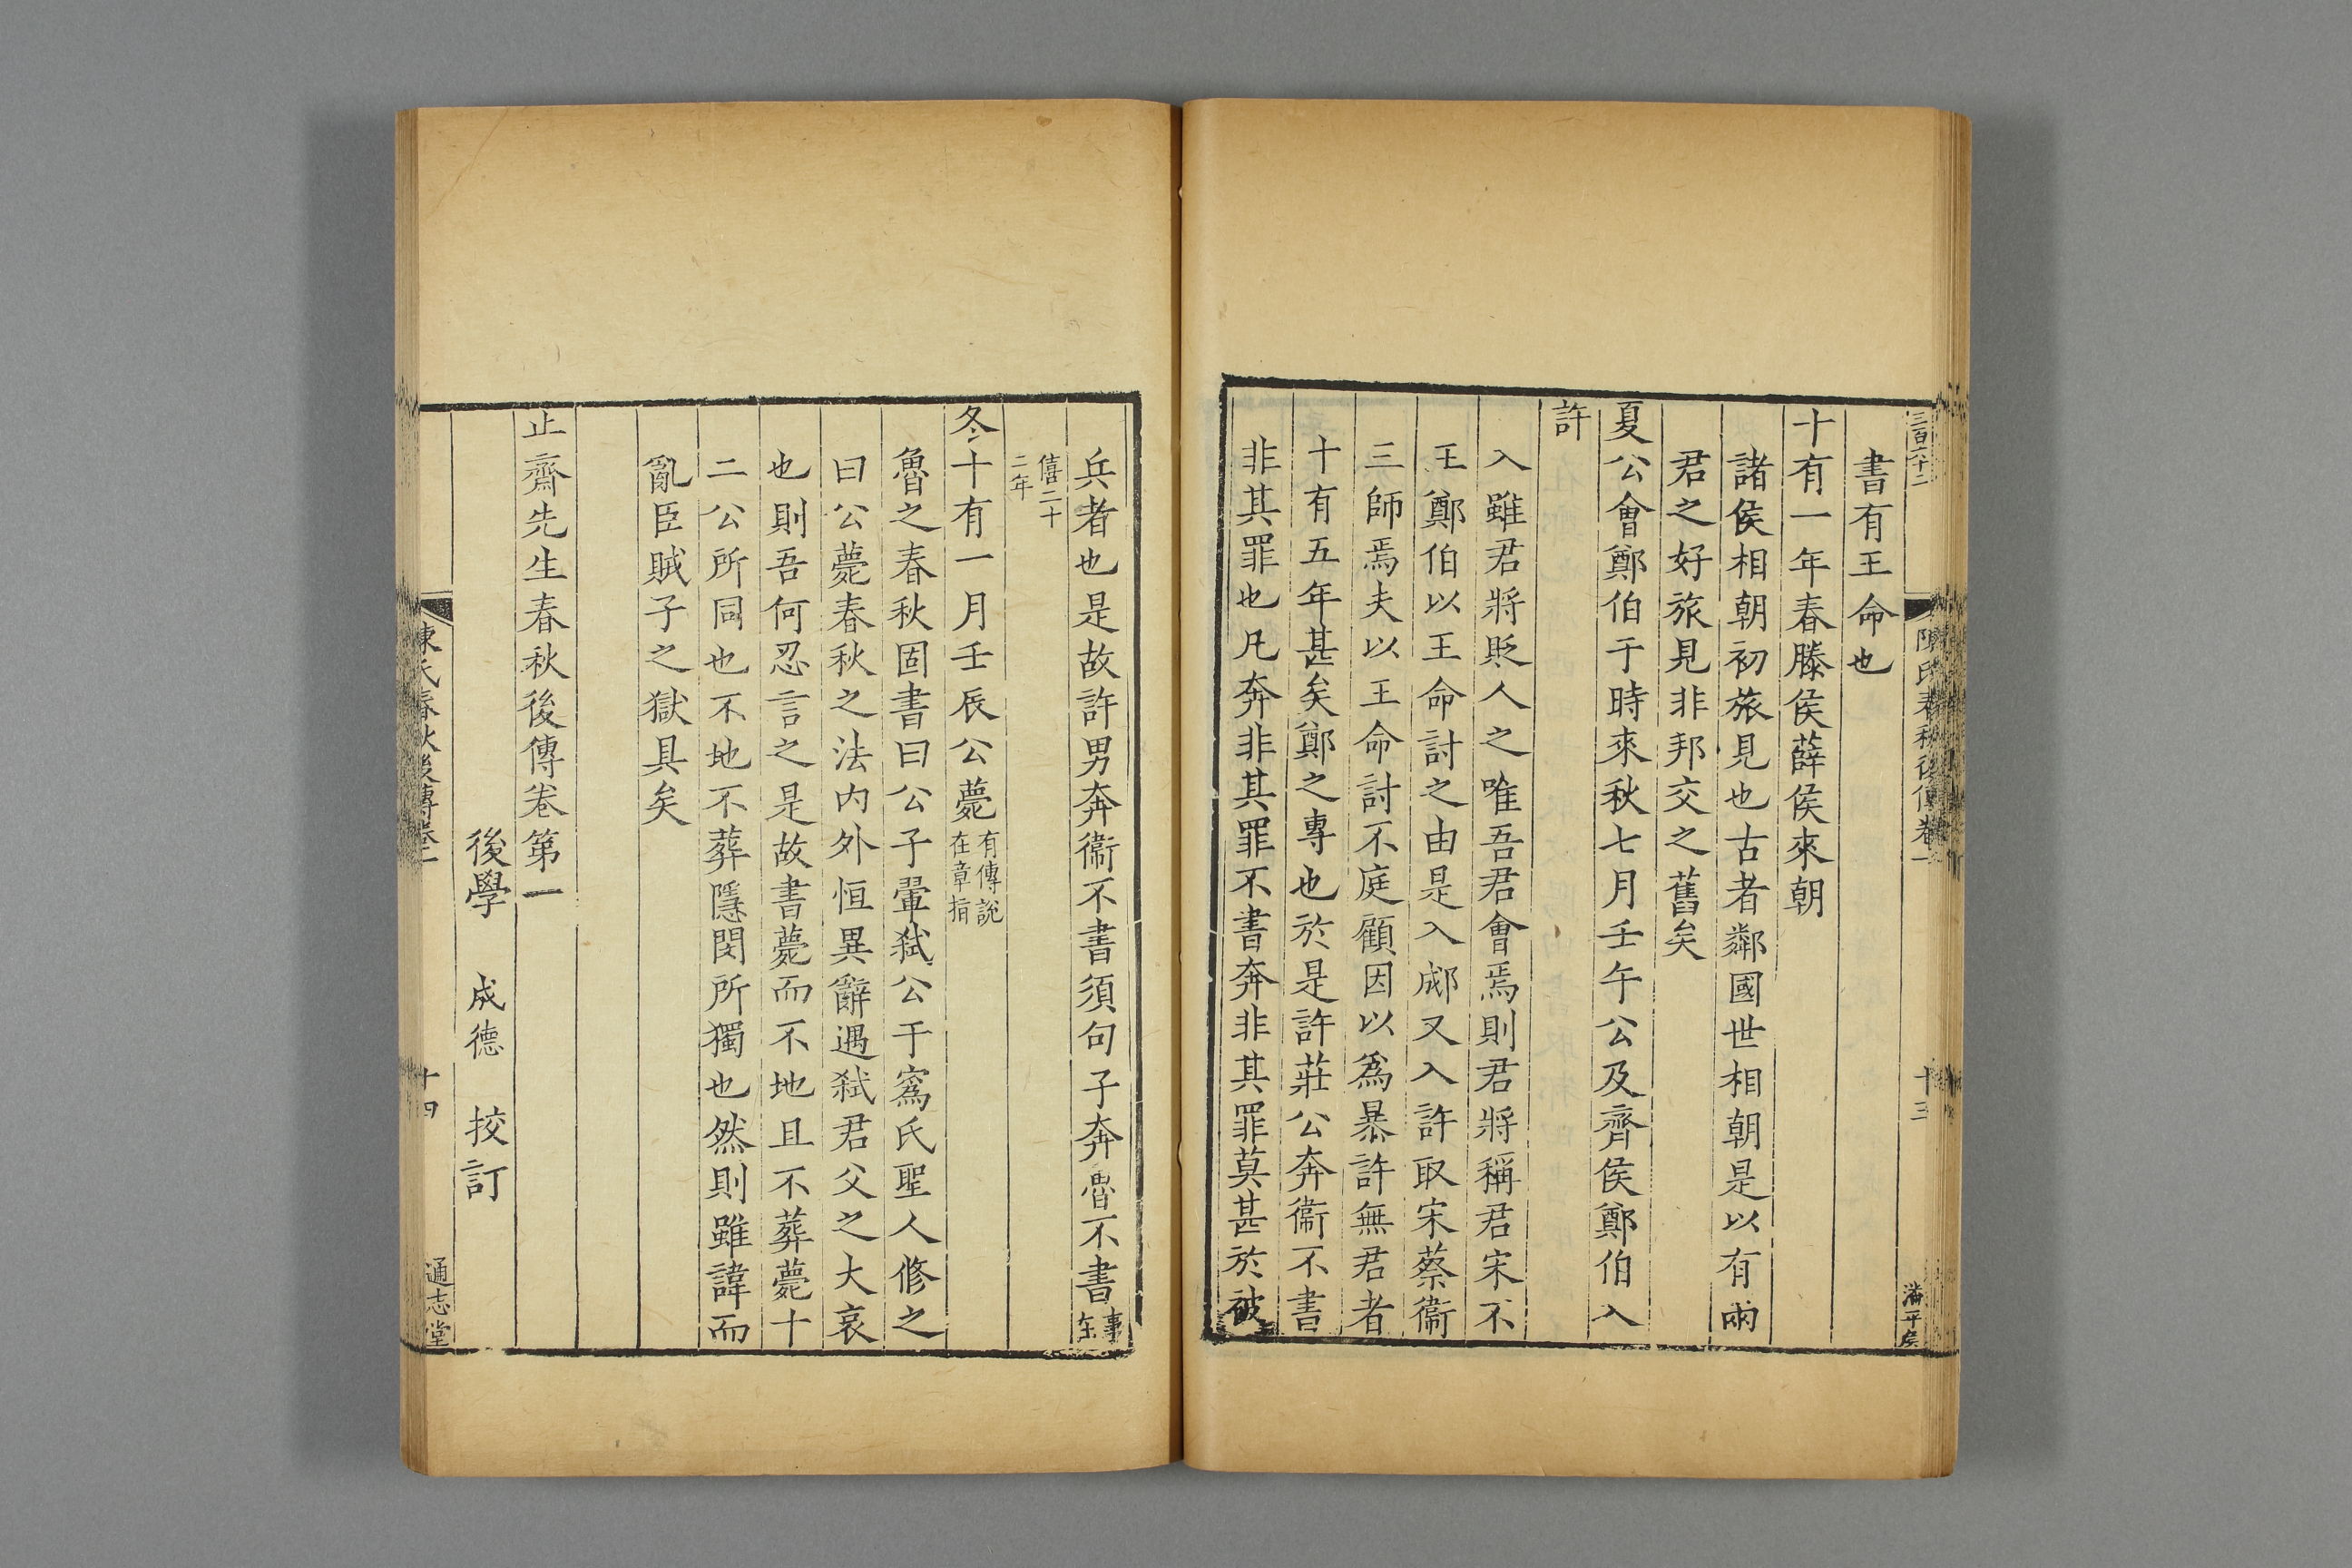 三百六十二
陳氏春秋後傳卷一
十三
潘平侯
書有王命也
十有一年春滕侯薛侯來朝
諸侯相朝初旅見也古者鄰國世相朝是以有兩
君之好旅見非邦交之舊矣
夏公會鄭伯于時來秋七月壬午公及齊侯鄭伯入
許
入雖君將貶人之唯吾君會焉則君將稱君宋不
王鄭伯以王命討之由是入郕又入許取宋蔡衞
三師焉夫以王命討不庭顧因以爲暴許無君者
十有五年甚矣鄭之專也於是許莊公奔衞不書
非其罪也凡奔非其罪不書奔非其罪莫甚於被
兵者也是故許男奔衞不書須句子奔魯不書事在
僖二十二年
冬十有一月壬辰公薨有傳說在章指
魯之春秋固書曰公子翬弒公于寪氏聖人修之
曰公薨春秋之法内外恒異辭遇弒君父之大哀
也則吾何忍言之是故書薨而不地且不葬薨十
二公所同也不地不葬隱閔所獨也然則雖諱而
亂臣賊子之獄具矣
止齋先生春秋後傳卷第一
後學 成德 挍訂
陳氏春秋後傳卷一
十四
通志堂